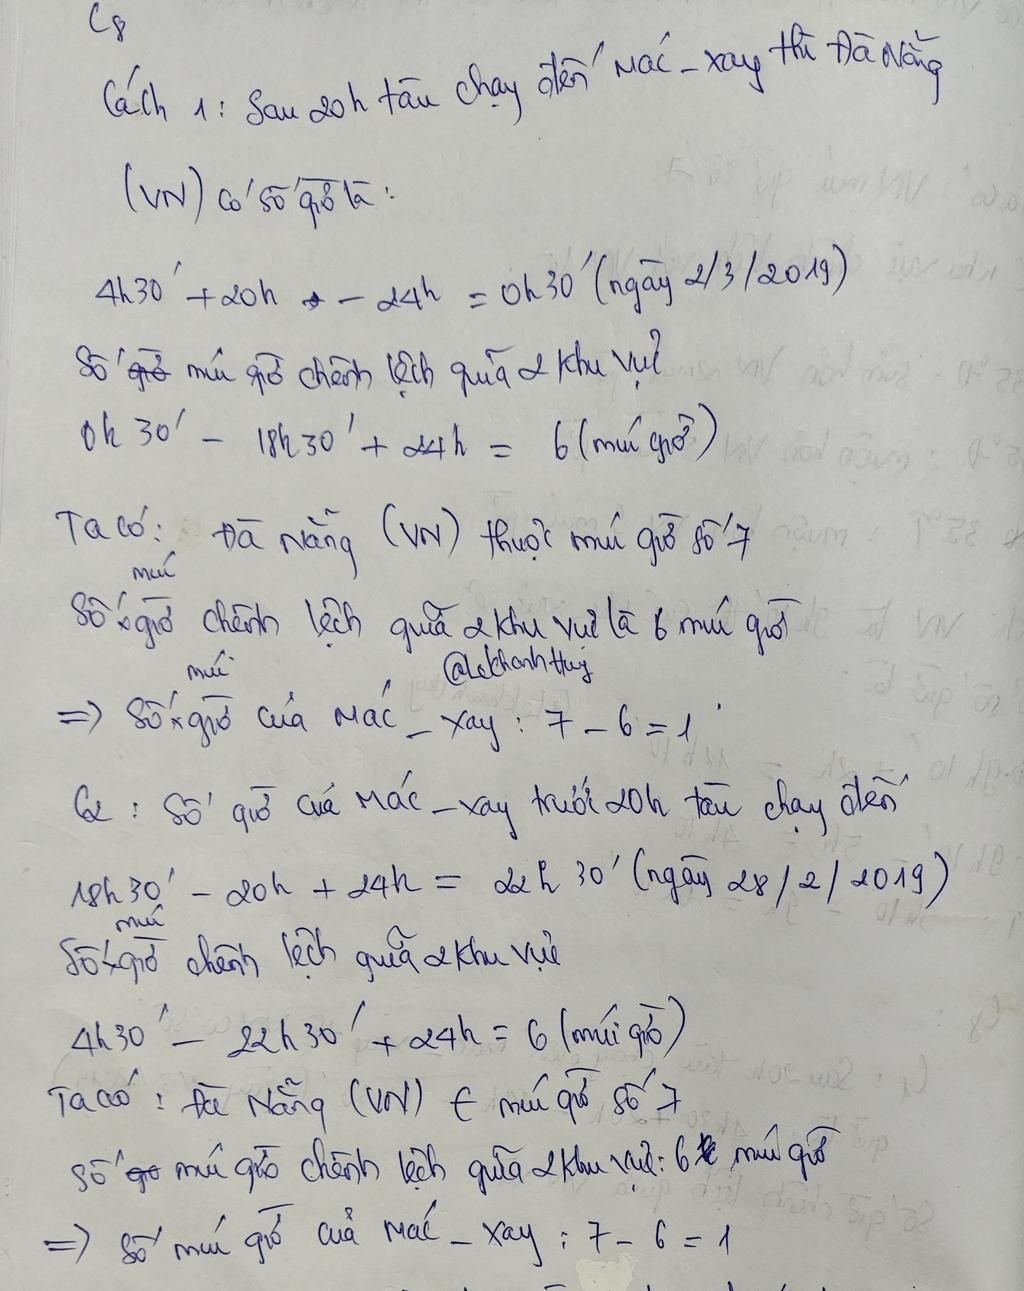 C8
Cách 1: Sau 20h tàu chạy đến Mác - xay thì Đà Nẵng
(VN) có số giờ là:
4h30' + 20h - 24h = 0h30' (ngày 2/3/2019)
Số múi giờ chênh lệch giữa 2 khu vực
0h 30' - 18h30' + 24h = 6 (múi giờ)
Ta có: Đà Nẵng (VN) thuộc múi giờ số 7
Số múi giờ chênh lệch giữa 2 khu vực là 6 múi giờ
@LeKhanhHuy
=> Số múi giờ của Mác - xay: 7 - 6 = 1
C2: Số giờ của Mác - xay trước 20h tàu chạy đến
18h30' - 20h + 24h = 22h 30' (ngày 28/2/2019)
Số múi giờ chênh lệch giữa 2 khu vực
4h30' - 22h30' + 24h = 6 (múi giờ)
Ta có: Đà Nẵng (VN) ∈ múi giờ số 7
Số múi giờ chênh lệch giữa 2 khu vực: 6 múi giờ
=> Số múi giờ của Mác - xay: 7 - 6 = 1